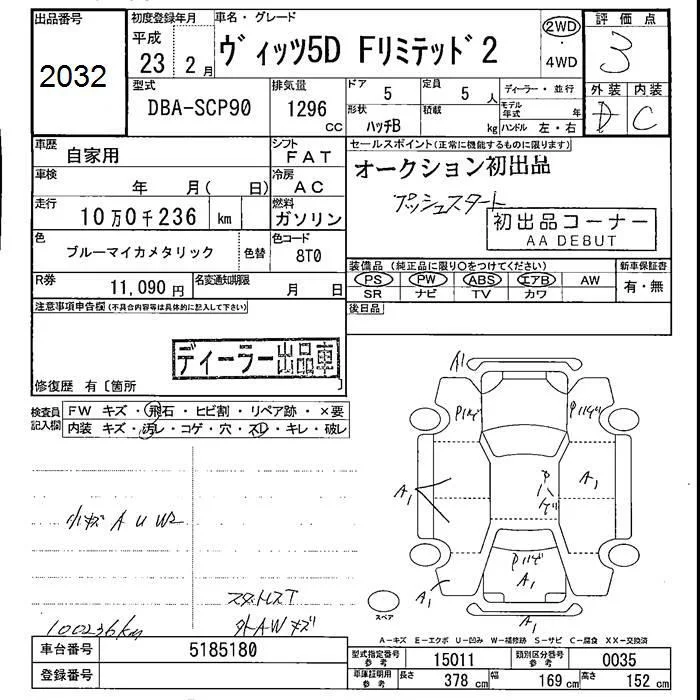 出品番号
2032
初度登録年月
平成
23 2月
車名・グレード
ヴィッツ5D Fリミテッド2
2WD
・
4WD
評価点
3
外装 内装
D C
型式
DBA-SCP90
排気量
1296
CC
ドア 5
定員 5人
形状
ハッチB
積載
kg
ディーラー・並行
モデル年式 年
ハンドル 左・右
車歴
自家用
シフト
FAT
車検
年 月( 日)
冷房
AC
走行
10万0千236 km
燃料
ガソリン
色
ブルーマイカメタリック
色替
色コード
8T0
R券
11,090円
名変通知期限
月 日
セールスポイント(正常に機能するものに限ります)
オークション初出品
プッシュスタート
初出品コーナー
AA DEBUT
装備品(純正品に限り○をつけてください)
新車保証書
PS PW ABS エアB AW
有・無
SR ナビ TV カワ
後日品
注意事項申告欄(不具合内容等は具体的に記入して下さい)
ディーラー出品車
修復歴 有〔箇所 〕
検査員
記入欄
FW キズ・飛石・ヒビ割・リペア跡・×要
内装 キズ・汚レ・コゲ・穴・スレ・キレ・破レ
小キズ A U W2
スタットレスT
外AWキズ
100236km
A1
A1
A1
A1
A1
A1
スペア
A-キズ E-エクボ U-凹み W-補修跡 S-サビ C-腐食 XX-交換済
車台番号
5185180
登録番号
型式指定番号
参考
15011
類別区分番号
参考
0035
車庫証明用
参考
長さ 378 cm
幅 169 cm
高さ 152 cm